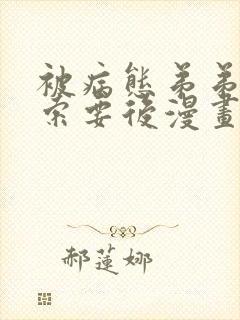 被病態弟弟
索要後漫畫
郝蓮娜